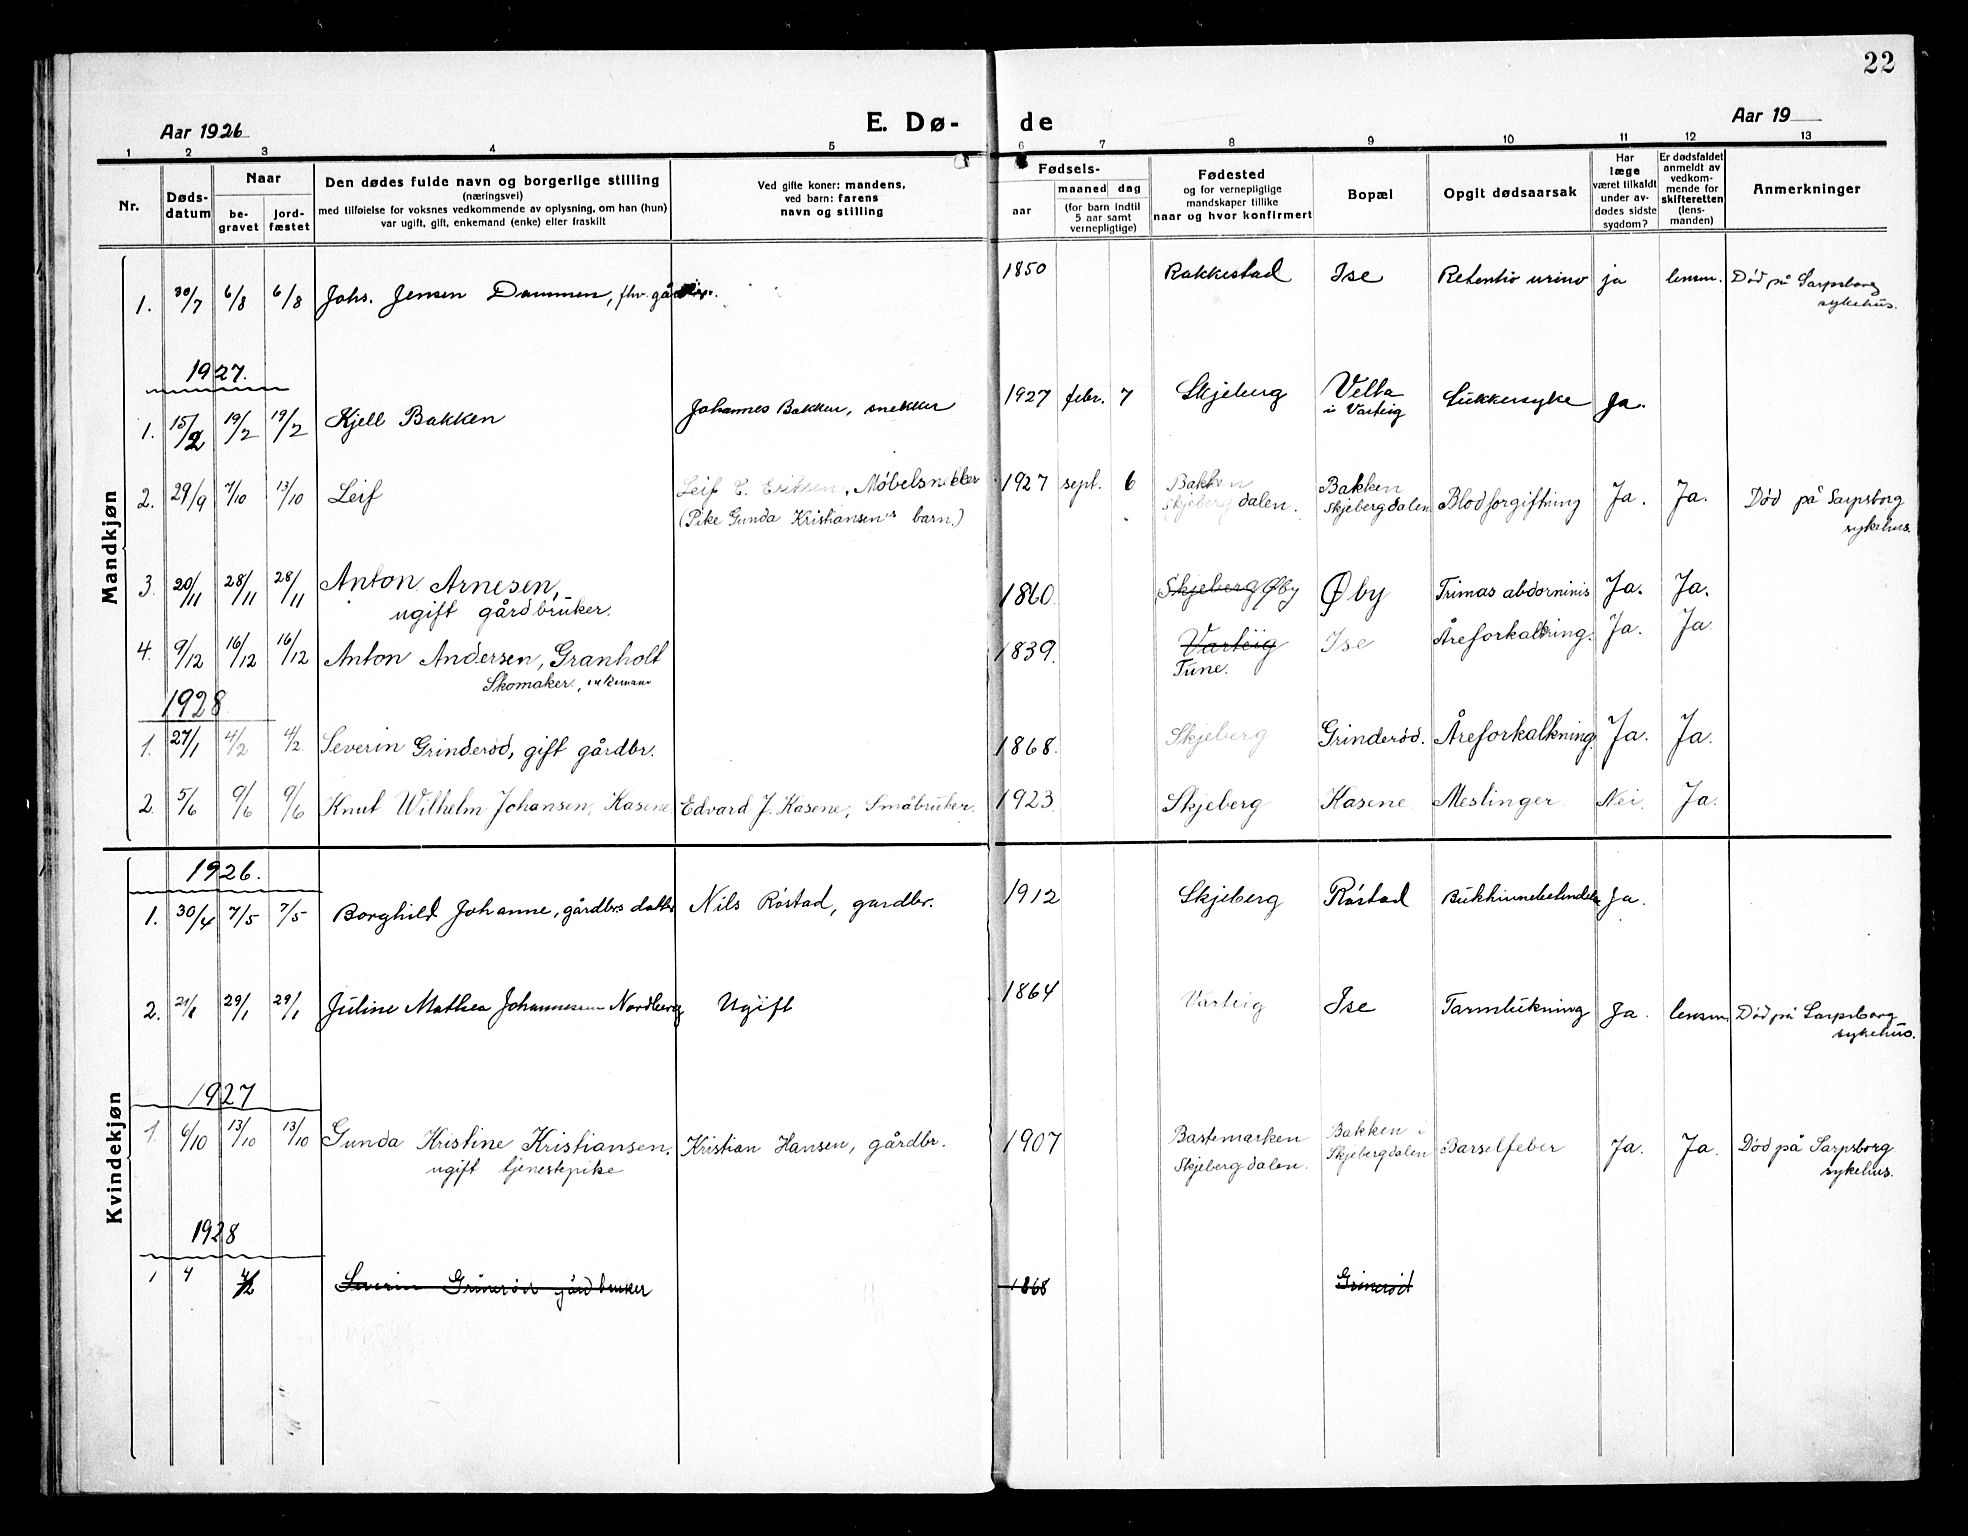 22
Aar 1926
E. Dø-
de
Aar 19
1 2 3 4 5 6 7 8 9 10 11 12 13
Nr.
Døds-
datum
Naar
be-
gravet
jord-
fæstet
Den dødes fulde navn og borgerlige stilling
(næringsvei)
med tilføielse for voksnes vedkommende av oplysning, om han (hun)
var ugift, gift, enkemand (enke) eller fraskilt
Ved gifte koner: mandens,
ved barn: farens
navn og stilling
Fødsels-
aar
maaned
dag
(for barn indtil
5 aar samt
vernepligtige)
Fødested
og for vernepligtige
mandskaper tillike
naar og hvor konfirmert
Bopæl
Opgit dødsaarsak
Har
læge
været tilkaldt
under av-
dødes sidste
sygdom?
Er dødsfaldet
anmeldt av
vedkom-
mende for
skifteretten
(lens-
manden)
Anmerkninger
Mandkjøn
1. 30/7 6/8 6/8 Johs. Jensen Dammen, fhv. 1850 Rakkestad Ise Retentio urino ja lensm. Død på Sarpsborg
sykehus.
1927.
1. 15/2 19/2 19/2 Kjell Bakken Johannes Bakken, snekker 1927 febr. 7 Skjeberg Velta Sukkersyke Ja.
i Varteig
2. 29/9 7/10 13/10 Leif Leif E. Eriksen, Møbelsnekker 1927 sept. 6 Bakken Bakken Blodforgiftning Ja. Ja. Død på Sarpsborg
(Pike Gunda Kristiansen's barn.) Skjebergdalen. Skjebergdalen sykehus.
3. 20/11 28/11 28/11 Anton Arnesen, 1860 Skjeberg Øby Øby abdominis Ja. Ja.
ugift gårdbruker.
4. 9/12 16/12 16/12 Anton Andersen, Granholt 1839. Varteig Ise Åreforkalkning. Ja. Ja.
Skomaker, enkemann Tune.
1928
1. 27/1 4/2 4/2 Severin Grinderød, gift gårdbr. 1868. Skjeberg Grinderød. Åreforkalkning. Ja. Ja.
2. 5/6 9/6 9/6 Knut Wilhelm Johansen, Kasene Edvard J. Kasene, Småbruker. 1923. Skjeberg Kasene Meslinger Nei. Ja.
Kvindekjøn
1926.
1. 30/4 7/5 7/5 Borghild Johanne, gårdbrs datter Nils Röstad, gardbr. 1912 Skjeberg Röstad Bukhinnebetendelse Ja.
2. 29/1 29/1 Juline Mathea Johannesen Nordberg Ugift 1864 Varteig Ise Tarmlukning Ja. lensm. Død på Sarpsborg
sykehus.
1927
1. 6/10 13/10 13/10 Gunda Kristine Kristiansen. Kristian Hansen, gårdbr. 1907 Bastemarken Bakken i Barselfeber Ja. Ja. Død på Sarpsborg
ugift tjenestepike Skjebergdalen. Skjebergdalen sykehus.
1928
1 4 4/2 Severin Grinerød gårdbruker 1868 Grinerød